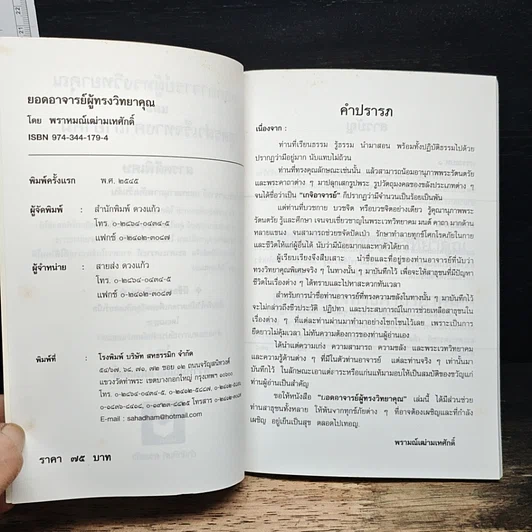 ยอดอาจารย์ผู้ทรงวิทยาคุณ
โดย พราหมณ์เฒ่ามเทศักดิ์
ISBN 974-344-179-4
พิมพ์ครั้งแรก พ.ศ. ๒๕๔๕
ผู้จัดพิมพ์ : สำนักพิมพ์ ดวงแก้ว
โทร. ๐-๒๘๖๔-๐๔๓๔-๕
แฟกซ์ ๐-๒๔๐๒-๓๐๘๗
ผู้จำหน่าย : สายส่ง ดวงแก้ว
โทร. ๐-๒๘๖๔-๐๔๓๔-๕
แฟกซ์ ๐-๒๔๐๒-๓๐๘๗
พิมพ์ที่ : โรงพิมพ์ บริษัท สหธรรมิก จำกัด
๕๔/๖๗, ๖๘, ๗๑, ๗๒ ซอย ๑๒ ถนนจรัญสนิทวงศ์
แขวงวัดท่าพระ เขตบางกอกใหญ่ กรุงเทพฯ ๑๐๖๐๐
E-mail : sahadham@hotmail.com
ราคา ๗๕ บาท
คำปรารภ
เนื่องจาก :
ท่านที่เรียนธรรม รู้ธรรม นำมาสอน พร้อมทั้งปฏิบัติธรรมไปด้วย
ปรากฏว่ามีอยู่มาก นับแทบไม่ถ้วน
ท่านที่ทรงคุณลักษณะเช่นนั้น แล้วสามารถน้อมอานุภาพพระรัตนตรัย
และพระคาถาต่าง ๆ มาปลุกเสกรูปพระ รูปวัตถุมงคลของขลังประเภทต่าง ๆ
จนได้ชื่อว่าเป็น "เกจิอาจารย์" ก็ปรากฏว่ามีจำนวนเป็นร้อยเป็นพัน
แต่ท่านที่บวชกาย บวชจิต หรือบวชจิตอย่างเดียว รู้คุณานุภาพพระ
รัตนตรัย รู้และศึกษา เจนจบเชี่ยวชาญในพระเวทวิทยาคม มนต์ คาถา มากด้าน
หลายแขนง จนสามารถช่วยขจัดปัดเป่า รักษาทำลายทุกข์โศกโรคภัยในกาย
และชีวิตให้แก่ผู้อื่นได้ นับว่ามีน้อยมากและหาตัวได้ยาก
ผู้เรียบเรียงจึงสืบเสาะ นำชื่อและที่อยู่ของท่านอาจารย์ที่นับว่า
ทรงวิทยาคุณพิเศษจริง ๆ ในทางนั้น ๆ มาบันทึกไว้ เพื่อจะให้สาธุชนที่มีปัญหา
ชีวิตในเรื่องต่าง ๆ ได้ทราบและไปหาสะดวกทันเวลา
สำหรับการนำชื่อท่านอาจารย์ที่ทรงความขลังในทางนั้น ๆ มาบันทึกไว้
จะไม่กล่าวถึงชีวประวัติ ปฏิปทา และประสบการณ์ในการช่วยเหลือสาธุชนใน
เรื่องต่าง ๆ ที่แต่ละท่านผ่านมาทำมาอย่างโชกโชนไว้เลย เพราะจะเป็นการ
ยืดยาวไม่คุ้มเวลา ไม่ทันความต้องการของท่านผู้อ่านเอง
ได้นำแต่ความเก่ง ความสามารถ ความขลัง และพระเวทวิทยาคม
และความรู้ด้านต่าง ๆ ที่มีในตัวท่านอาจารย์ แต่ละท่านจริง ๆ เท่านั้นมา
บันทึกไว้ ในลักษณะเอาแต่ถาวรหรือแก่นแท้มามอบให้เป็นสมบัติของขวัญแก่
ท่านผู้อ่านเป็นสำคัญ
ขอให้หนังสือ "ยอดอาจารย์ผู้ทรงวิทยาคุณ" เล่มนี้ ได้มีส่วนช่วย
ท่านสาธุชนทั้งหลาย ให้พ้นจากทุกข์ภัยต่าง ๆ ที่อาจต้องเผชิญและที่กำลัง
เผชิญ อยู่เย็นเป็นสุข ตลอดไปเทอญ.
พราหมณ์เฒ่ามเทศักดิ์